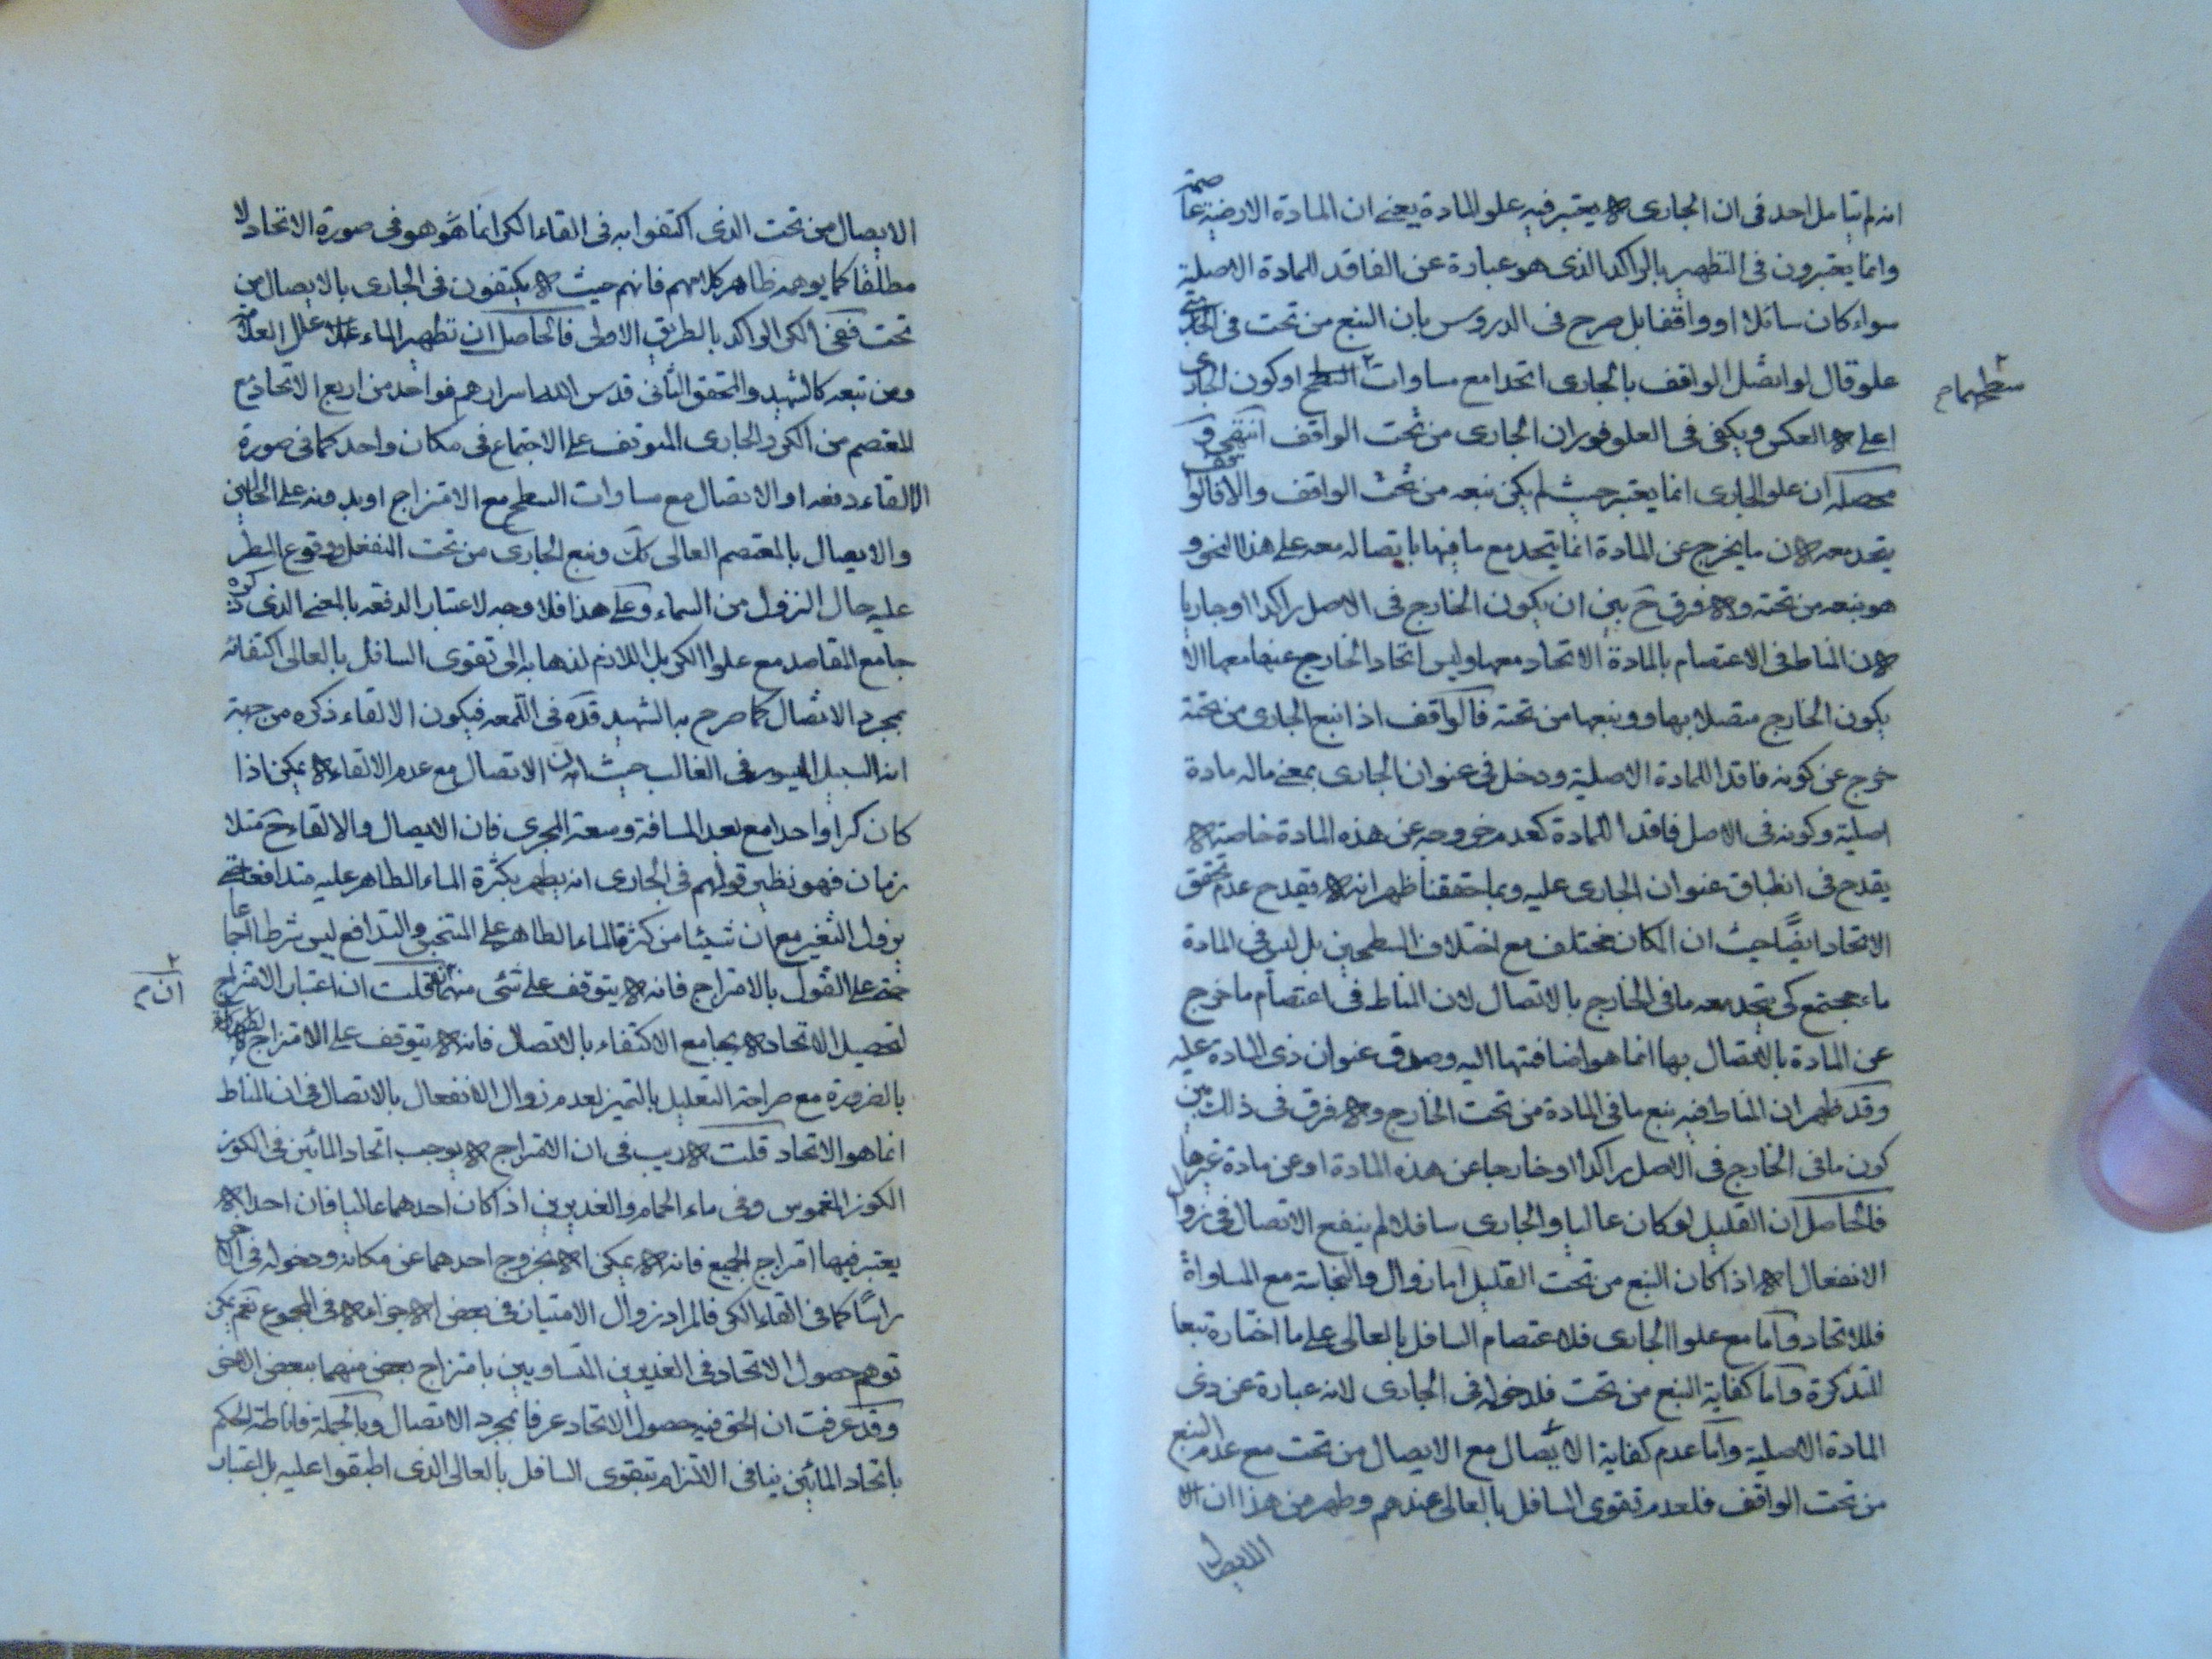 انه لم يتامل احد فى ان الجارى لا يعتبر فيه علو المادة يعنى ان المادة الارضية
وانما يعتبرون فى التطهير بالراكد الذى هو عبارة عن الفاقد للمادة الاصلية
سواء كان سائلا او واقفا بل صرح فى الدروس بان النبع من تحت فى
علو قال لو اتصل الواقف بالجارى اتحدا مع مساوات السطح او كون الجارى
سطحهما م
اعلى لا العكس ويكفى فى العلو فوران الجارى من تحت الواقف انتهى و
محصله ان علو الجارى انما يعتبر حيث لم يكن نبعه من تحت الواقف والا فالواقف
يتحد معه لان ما يخرج عن المادة انما يتحد مع ما فيها باتصاله معه على هذا النحو و
هو نبعه من تحته ولا فرق ح بين ان يكون الخارج فى الاصل راكدا او جاريا
لان المناط فى الاعتصام بالمادة الاتحاد معها وليس اتحاد الخارج عنها معها الا
يكون الخارج متصلا بها ونبعها من تحته فالواقف اذا نبع الجارى من تحته
خرج عن كونه فاقدا للمادة الاصلية ودخل فى عنوان الجارى بمعنى ماله مادة
اصلية وكونه فى الاصل فاقدا للمادة كعدم خروجه عن هذه المادة خاصة لا
يقدح فى انطباق عنوان الجارى عليه وبما حققنا ظهر انه لا يقدح عدم تحقق
الاتحاد ايضا حيث ان المكان مختلف مع اختلاف السطحين بل ليس فى المادة
ماء مجتمع كى يتحد معه ما فى الخارج بالاتصال لان المناط فى اعتصام ما خرج
عن المادة بالاتصال بها انما هو اضافتها اليه وصدق عنوان ذى المادة عليه
وقد ظهر ان المناط فيه نبع ما فى المادة من تحت الخارج ولا فرق فى ذلك بين
كون ما فى الخارج فى الاصل راكدا او خارجا عن هذه المادة او عن مادة غيرها
فالحاصل ان القليل لو كان عاليا والجارى سافلا لم ينفع الاتصال فى زوال
الانفعال الا اذا كان النبع من تحت القليل اما زوال النجاسة مع المساواة
فللاتحاد واما مع علو الجارى فلاعتصام السافل بالعالى على ما اختاره تبعا
للتذكرة واما كفاية النبع من تحت فلدخوله فى الجارى لانه عبارة عن ذى
المادة الاصلية واما عدم كفاية الاتصال مع الايصال من تحت مع عدم النبع
من تحت الواقف فلعدم تقوى السافل بالعالى عندهم وظهر من هذا ان
الايصال
الايصال من تحت الذى اكتفوا به فى القاء الكر انما هو فى صورة الاتحاد لا
مطلقا كما يوهمه ظاهر كلامهم فانهم حيث لا يكتفون فى الجارى بالايصال من
تحت ففى الكر الراكد بالطريق الاولى فالحاصل ان تطهير الماء على العلامة
ومن تبعه كالشهيد والمحقق الثانى قدس الله اسرارهم فواحد من اربع الاتحاد مع
المعتصم من الكر والجارى المتوقف على الاجتماع فى مكان واحد كما فى صورة
الالقاء دفعه او الاتصال مع مساوات السطح مع الامتزاج او بدونه على الخلاف
والايصال بالمعتصم العالى كك ونبع الجارى من تحت المنفعل ووقوع المطر
عليه حال النزول من السماء وعلى هذا فلا وجه لاعتبار الدفعه بالمعنى الذى ذكره
جامع المقاصد مع علو الكر بل اللازم لذهابه الى تقوى السافل بالعالى اكتفائه
بمجرد الاتصال كما صرح به الشهيد قده فى اللمعه فيكون الالقاء ذكره من جهة
انه السبيل الميسور فى الغالب حيث ان الاتصال مع عدم الالقاء لا يمكن اذا
كان كرا واحدا مع بعد المسافة وسعة المجرى فان الايصال والالقاء ح متلا
زمان فهو نظير قولهم فى الجارى انه يطهر بكثرة الماء الطاهر عليه متدافعا حتى
يزول التغير مع ان شيئا من كثرة الماء الطاهر على المتنجس والتدافع ليس شرطا اجماعا
ان م
حتى على القول بالامتزاج فانه لا يتوقف على شئ منهما فان قلت ان اعتبار الامتزاج
لتحصيل الاتحاد لا يجامع الاكتفاء بالاتصال فانه لا يتوقف على الامتزاج
بالضرورة مع صراحة التعليل بالتميز لعدم زوال الانفعال بالاتصال فى ان المناط
انما هو الاتحاد قلت لا ريب فى ان الامتزاج لا يوجب اتحاد المائين فى الكوز
الكوز المغموس وفى ماء الحمام والغديرين اذا كان احدهما عاليا فان احدا لا
يعتبر فيها امتزاج الجميع فانه لا يمكن الا بخروج احدهما عن مكانه ودخوله فى الاخر
راسا كما فى القاء الكر فالمراد زوال الامتياز فى بعض الاجزاء لا فى المجموع نعم يمكن
توهم حصول الاتحاد فى الغديرين المتساويين بامتزاج بعض منهما ببعض الاخر
وقد عرفت ان الحق فيه حصول الاتحاد عرفا بمجرد الاتصال وبالجملة فاناطة الحكم
باتحاد المائين ينافى الالتزام بتقوى السافل بالعالى الذى اطبقوا عليه بل اعتبار